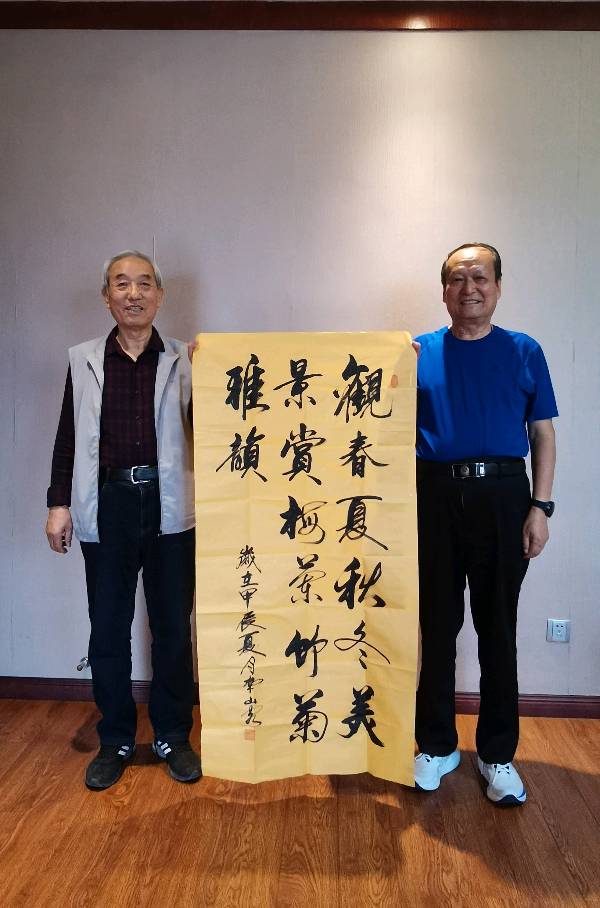 觀春夏秋冬美
景賞梅蘭竹菊
雅韻
歲在甲辰夏月